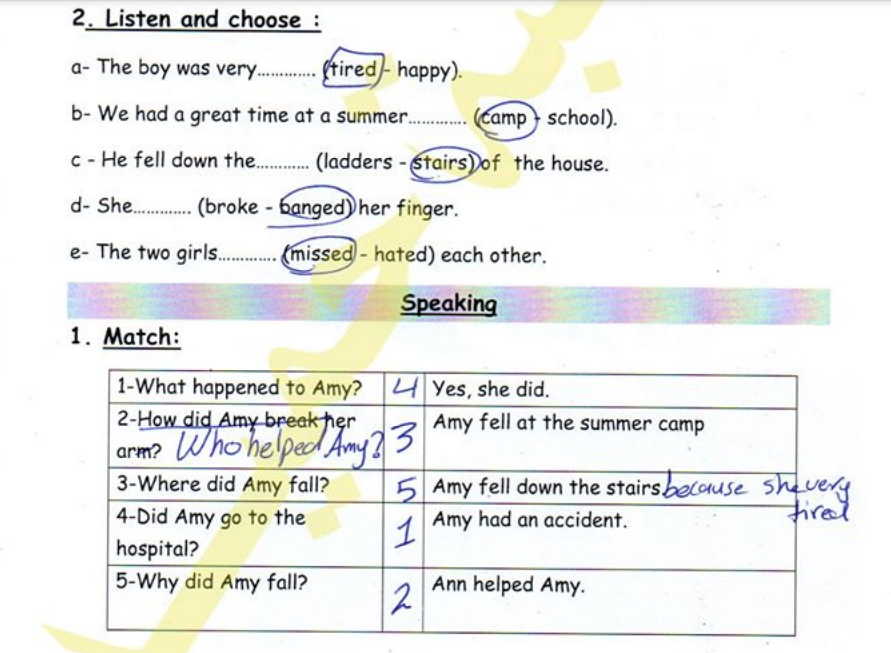 2. Listen and choose :
a- The boy was very............. (tired - happy).
b- We had a great time at a summer............. (camp - school).
c - He fell down the............ (ladders - stairs) of the house.
d- She............. (broke - banged) her finger.
e- The two girls............. (missed - hated) each other.
Speaking
1. Match:
1-What happened to Amy? 4 Yes, she did.
2-How did Amy break her 3 Amy fell at the summer camp
arm? Who helped Amy?
3-Where did Amy fall? 5 Amy fell down the stairs because she very
tired
4-Did Amy go to the 1 Amy had an accident.
hospital?
5-Why did Amy fall? 2 Ann helped Amy.